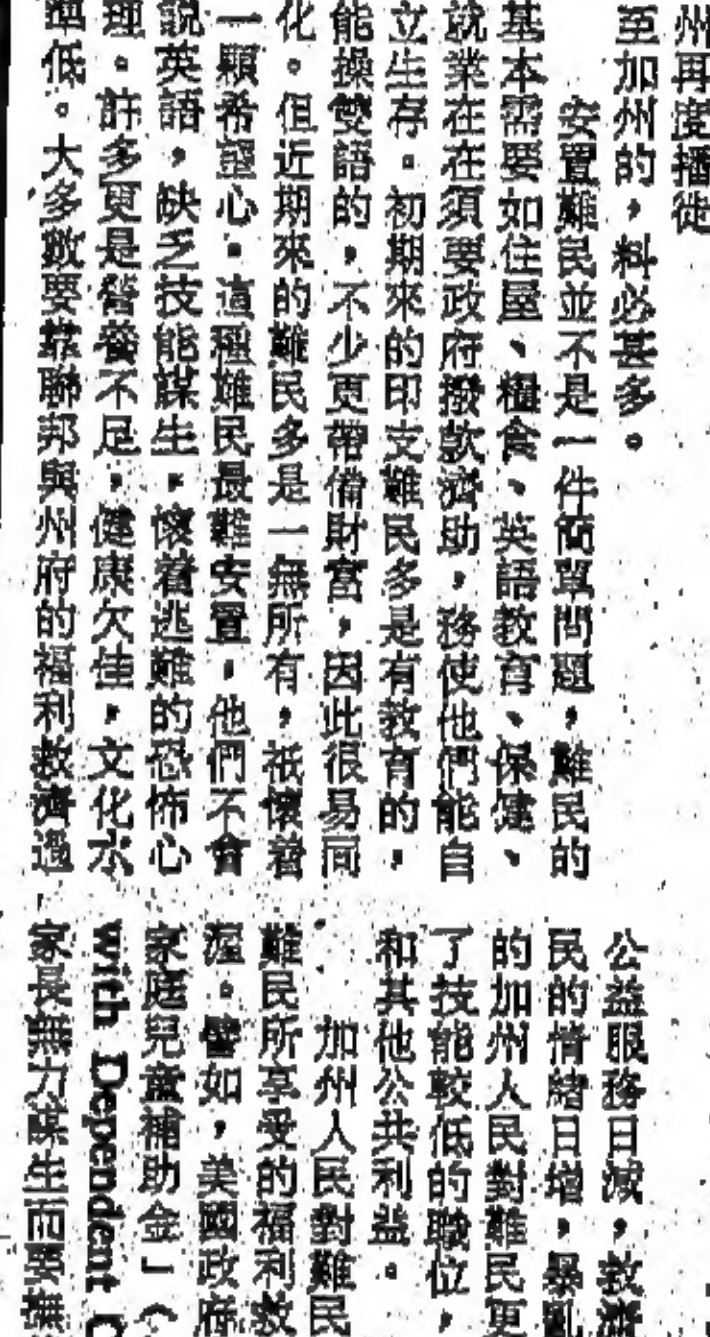 州再度播徙
至加州的，料必甚多。
安置難民並不是一件簡單問題，難民的
基本需要如住屋、糧食、英語教育、保健、
就業在在須要政府撥款濟助，務使他們能自
立生存。初期來的印支難民多是有教育的，
能操雙語的，不少更帶備財富，因此很易同
化。但近期來的難民多是一無所有，祇懷着
一顆希望心。這種難民最難安置，他們不會
說英語，缺乏技能謀生，懷着逃難的恐怖心
理。許多更是營養不足，健康欠佳，文化水
準低。大多數要靠聯邦與州府的福利救濟過
公益服務日減，救濟
民的情緒日增，暴亂
的加州人民對難民更
了技能較低的職位，
和其他公共利益。
加州人民對難民
難民所享受的福利救
渥。譬如，美國政府
家庭兒童補助金」（
with Dependent C
家長無力謀生而要撫